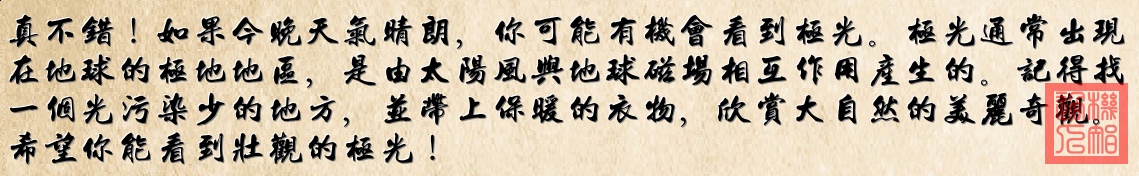 真不錯！如果今晚天氣晴朗，你可能有機會看到極光。極光通常出現
在地球的極地地區，是由太陽風與地球磁場相互作用產生的。記得找
一個光污染少的地方，並帶上保暖的衣物，欣賞大自然的美麗奇觀。
希望你能看到壯觀的極光！